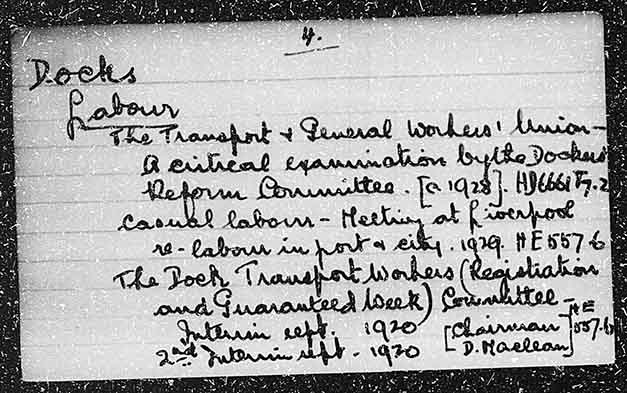 4.
Docks
Labour
The Transport & General Workers' Union -
A critical examination by the Dockers'
Reform Committee. [c 1928]. HD6661 F7.2
Casual labour - Meeting at Liverpool
re - labour in port & city. 1929. HE557.6
The Dock Transport Workers (Registration
and Guaranteed Week) Committee -
Interim rept. 1920 [Chairman HE
2nd Interim rept - 1920 D. Maclean] 557.6